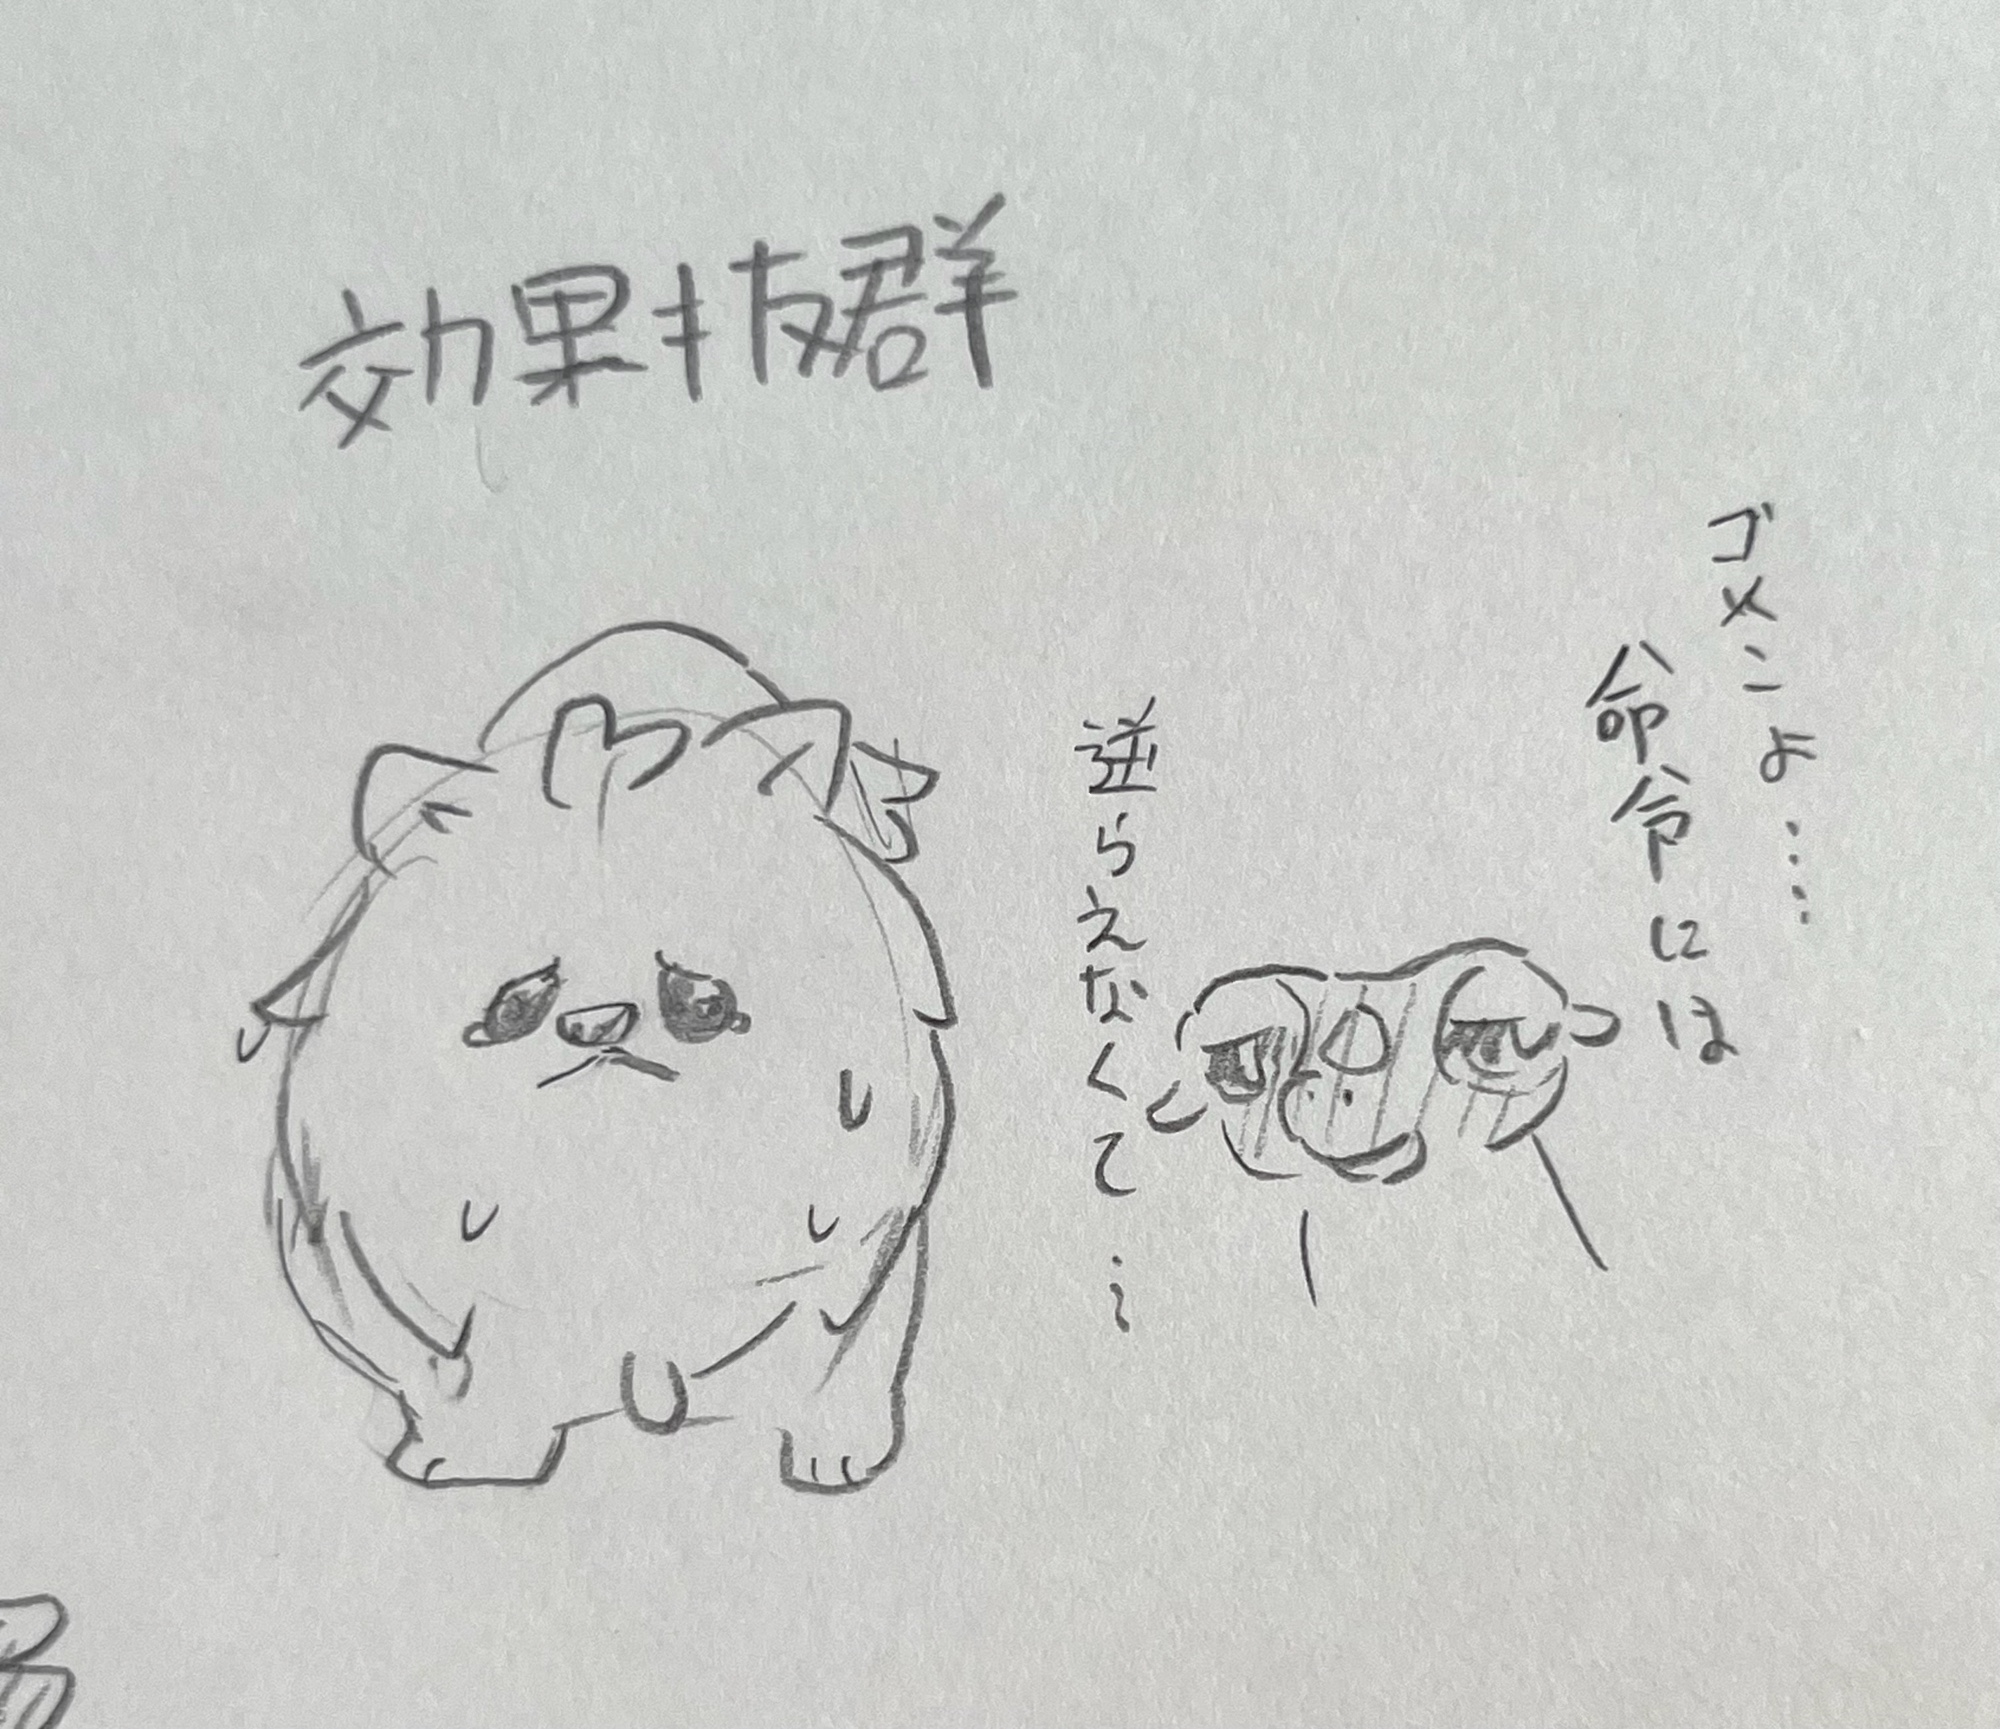 効果抜群
ゴメンよ……
命令には
逆らえなくて…